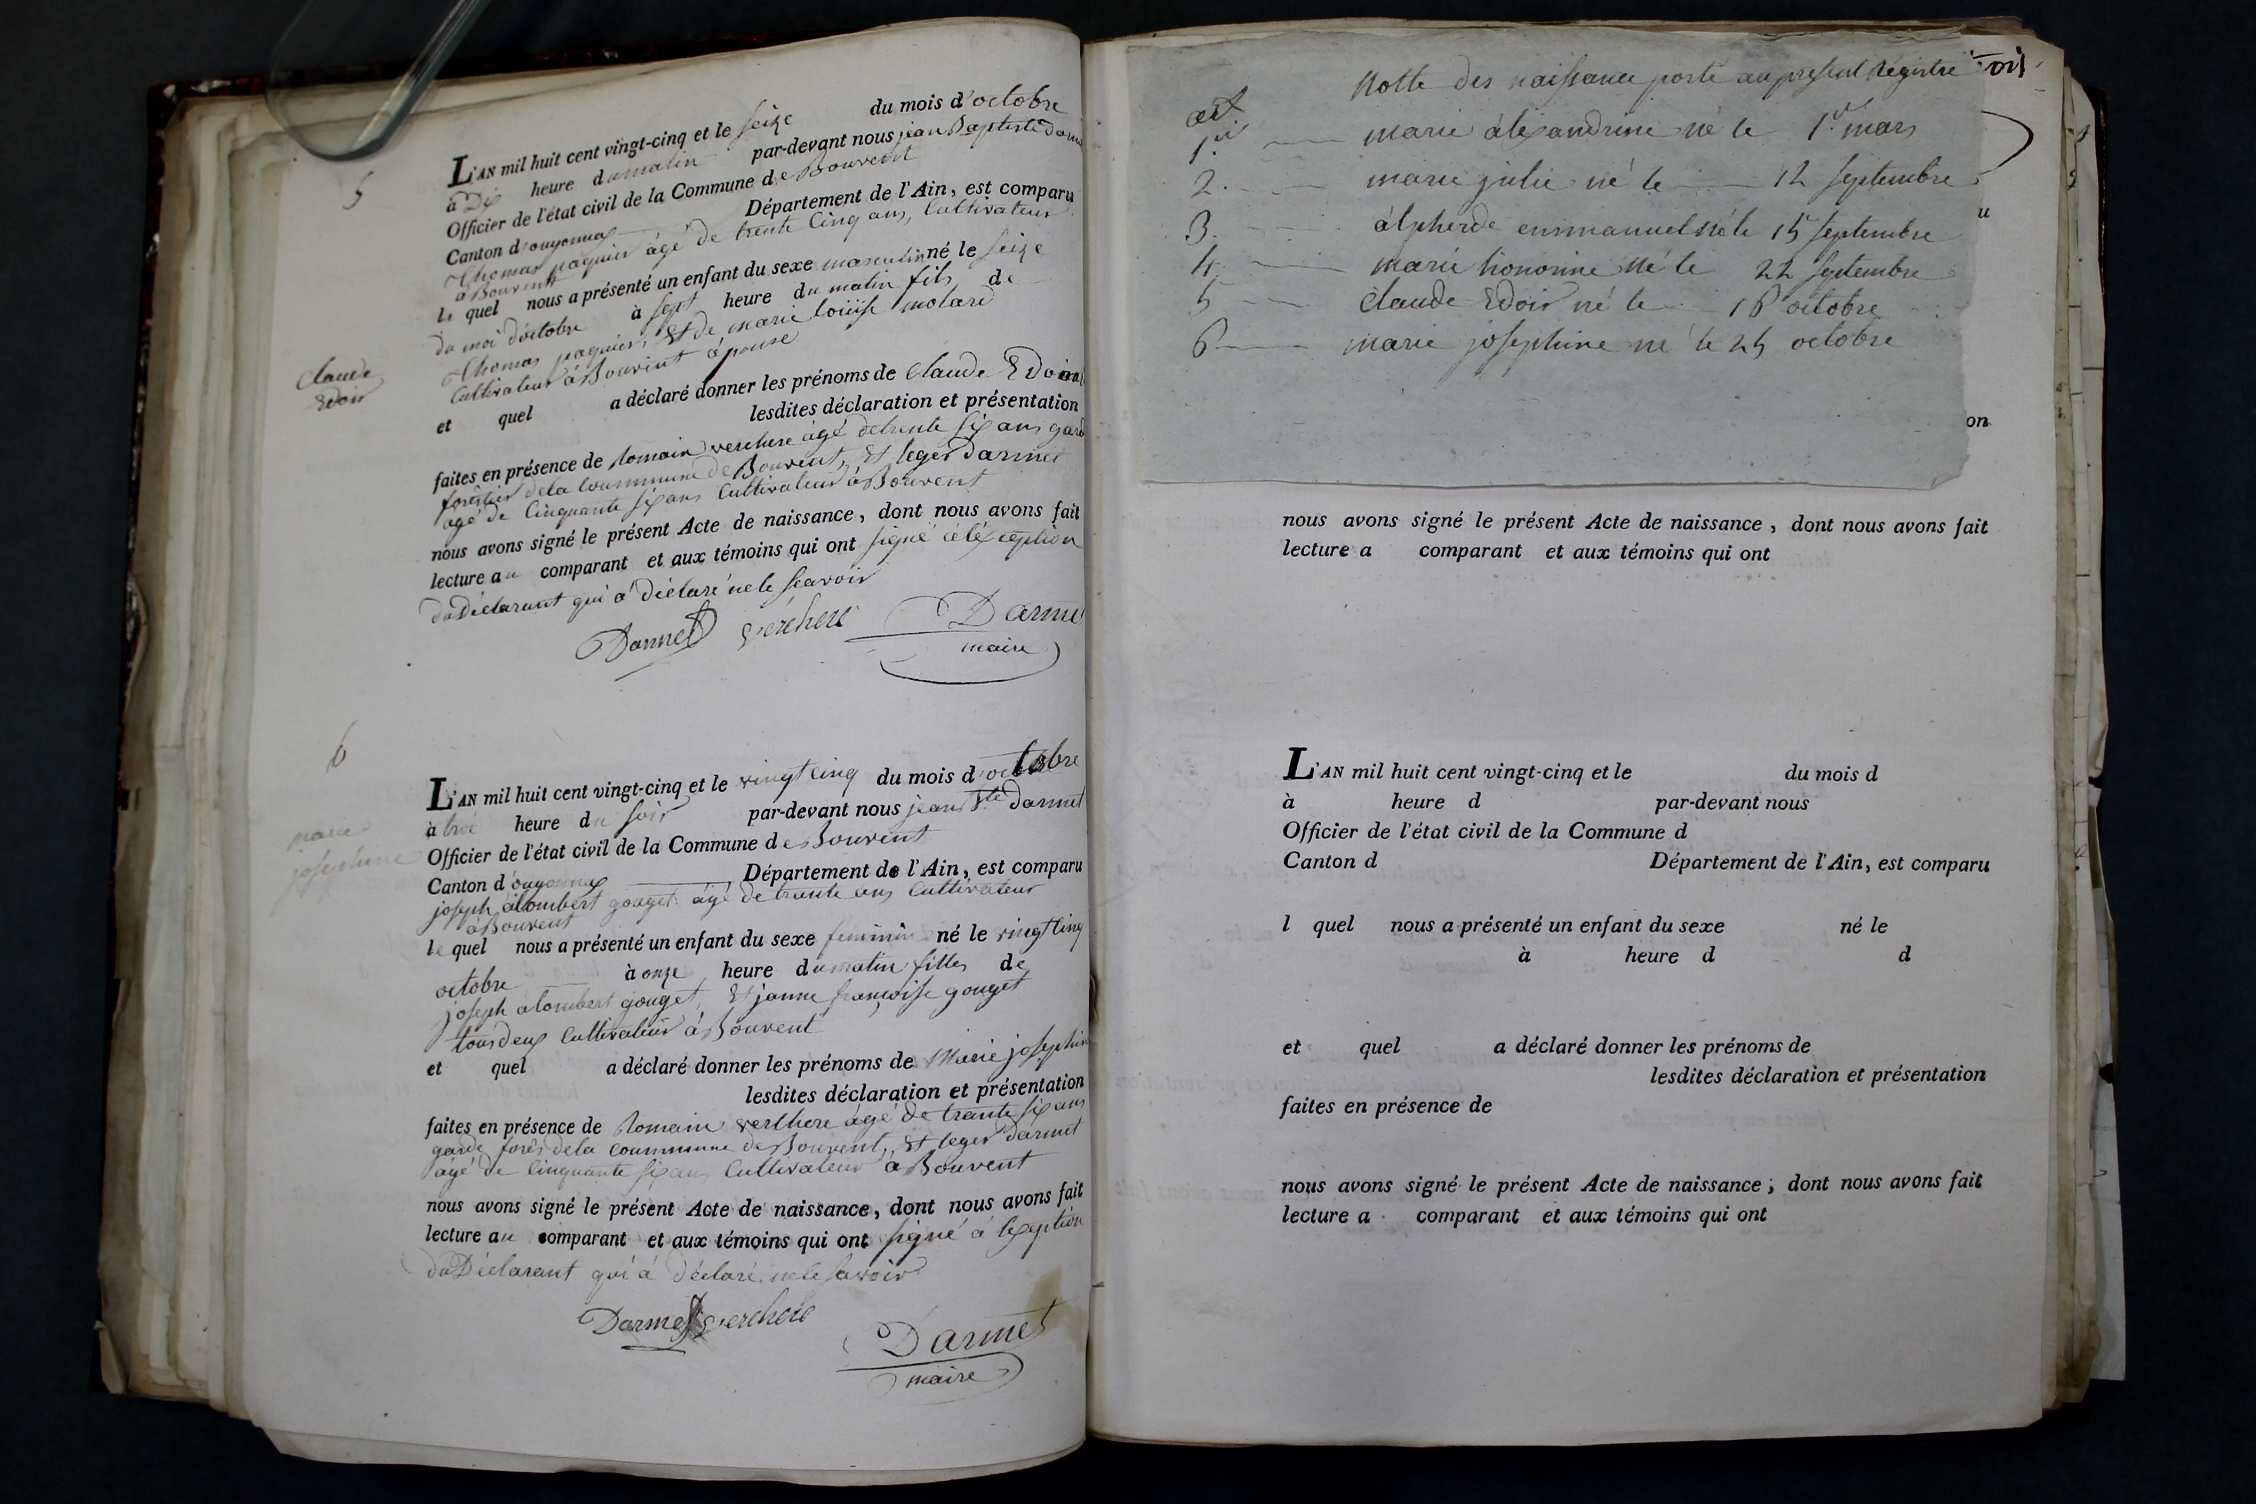 5
L'AN mil huit cent vingt-cinq et le seize du mois d'octobre
à Dix heure du matin par-devant nous jean Baptiste
Officier de l'état civil de la Commune de Bouvent
Canton d'ouyonnax Département de l'Ain, est comparu
Thomas paquier âgé de trente Cinq ans, Cultivateur
à Bouvent
le quel nous a présenté un enfant du sexe masculin né le seize
du moi d'octobre à sept heure du matin fils de
Thomas paquier, Et de marie louiise molard
Cultivateur à Bouvent épouse
Claude
Edoir
et quel a déclaré donner les prénoms de Claude Edoir
lesdites déclaration et présentation
faites en présence de Romain verchere âgé de trente six ans garde
forêstier de la Commmune de Bouvent, Et leger Darmet
âgé de Cinquante six ans Cultivateur à Bouvent
nous avons signé le présent Acte de naissance, dont nous avons fait
lecture au comparant et aux témoins qui ont signé à léxception
du Déclarant qui à déclaré ne le scavoir
Darmet verchere Darmet
maire
6
L'AN mil huit cent vingt-cinq et le vingt cinq du mois d'octobre
à troi heure du soir par-devant nous jean Bte Darmet
marie
josephine
Officier de l'état civil de la Commune de Bouvent
Canton d'ouyonnax Département de l'Ain, est comparu
joseph alombert gouget âgé de trante ans Cultivateur
à Bouvent
le quel nous a présenté un enfant du sexe feminin né le vingt cinq
octobre à onze heure du matin filles de
joseph alombert gouget, Et janne françoise gouget
tous deux Cultivateur à Bouvent
et quel a déclaré donner les prénoms de Marie josephine
lesdites déclaration et présentation
faites en présence de Romain verchere âgé de trante six ans
garde forês de la commmune de Bouvent, Et leger darmet
âgé de Cinquante six ans Cultivateur à Bouvent
nous avons signé le présent Acte de naissance, dont nous avons fait
lecture au comparant et aux témoins qui ont signé à lexeption
du Déclarant qui à déclaré ne le savoir
Darmet verchere
Darmet
maire
Notte des naissance porté au present Régistre
art.
1.er marie aléxandrine né le 1.er mars
2. marie julie né le 12 septembre
3. alpherde emmanuel né le 15 septembre
4. marie honorine né le 22 septembre
5 claude Edoir né le 16 octobre
6 marie josephine né le 25 octobre
u
on
nous avons signé le présent Acte de naissance, dont nous avons fait
lecture a comparant et aux témoins qui ont
L'AN mil huit cent vingt-cinq et le du mois d
à heure d par-devant nous
Officier de l'état civil de la Commune d
Canton d Département de l'Ain, est comparu
l quel nous a présenté un enfant du sexe né le
à heure d d
et quel a déclaré donner les prénoms de
lesdites déclaration et présentation
faites en présence de
nous avons signé le présent Acte de naissance; dont nous avons fait
lecture a comparant et aux témoins qui ont